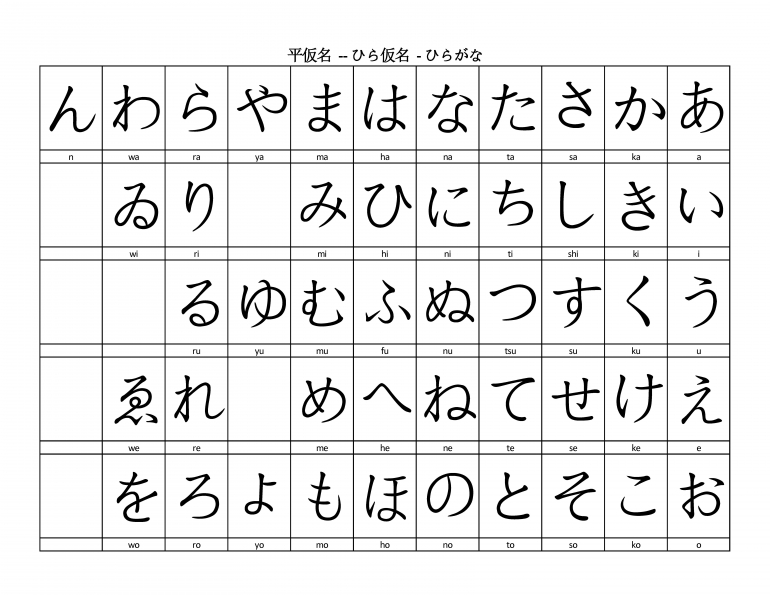 平仮名 -- ひら仮名 - ひらがな
ん わ ら や ま は な た さ か あ
n wa ra ya ma ha na ta sa ka a
ゐ り み ひ に ち し き い
wi ri mi hi ni ti shi ki i
る ゆ む ふ ぬ つ す く う
ru yu mu fu nu tsu su ku u
ゑ れ め へ ね て せ け え
we re me he ne te se ke e
を ろ よ も ほ の と そ こ お
wo ro yo mo ho no to so ko o